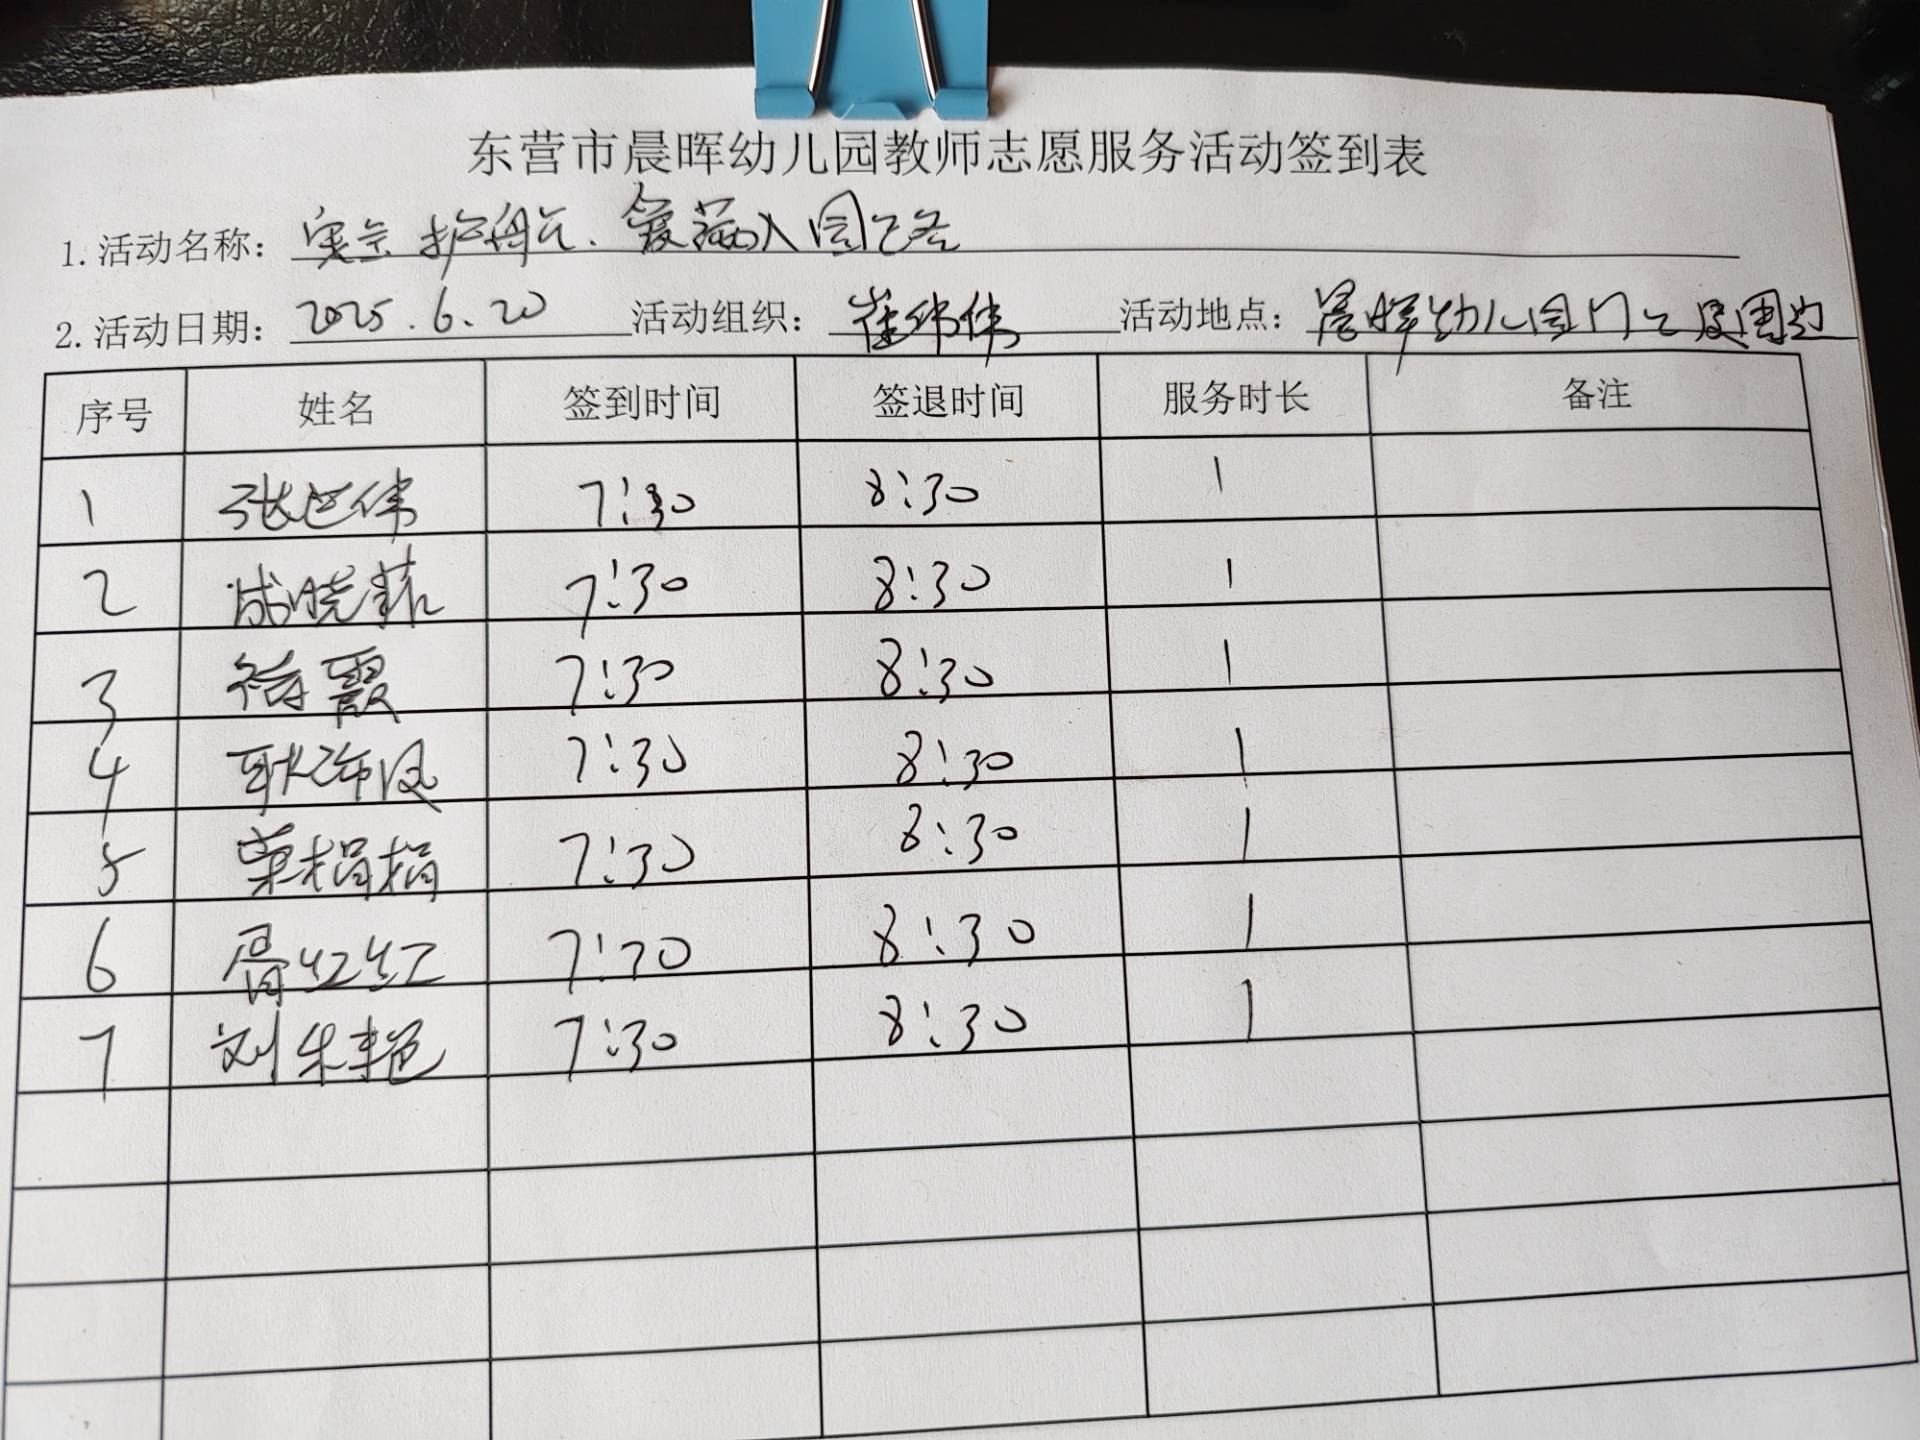 东营市晨晖幼儿园教师志愿服务活动签到表
1.活动名称: 护航 入园
2.活动日期: 2025.6.20 活动组织: 崔伟伟 活动地点: 晨晖幼儿园门口及周边
序号 姓名 签到时间 签退时间 服务时长 备注
1 张世伟 7:30 8:30 1
2 成晓菲 7:30 8:30 1
3 徐霞 7:30 8:30 1
4 耿 凤 7:30 8:30 1
5 荣娟娟 7:30 8:30 1
6 胥红红 7:30 8:30 1
7 刘朱艳 7:30 8:30 1